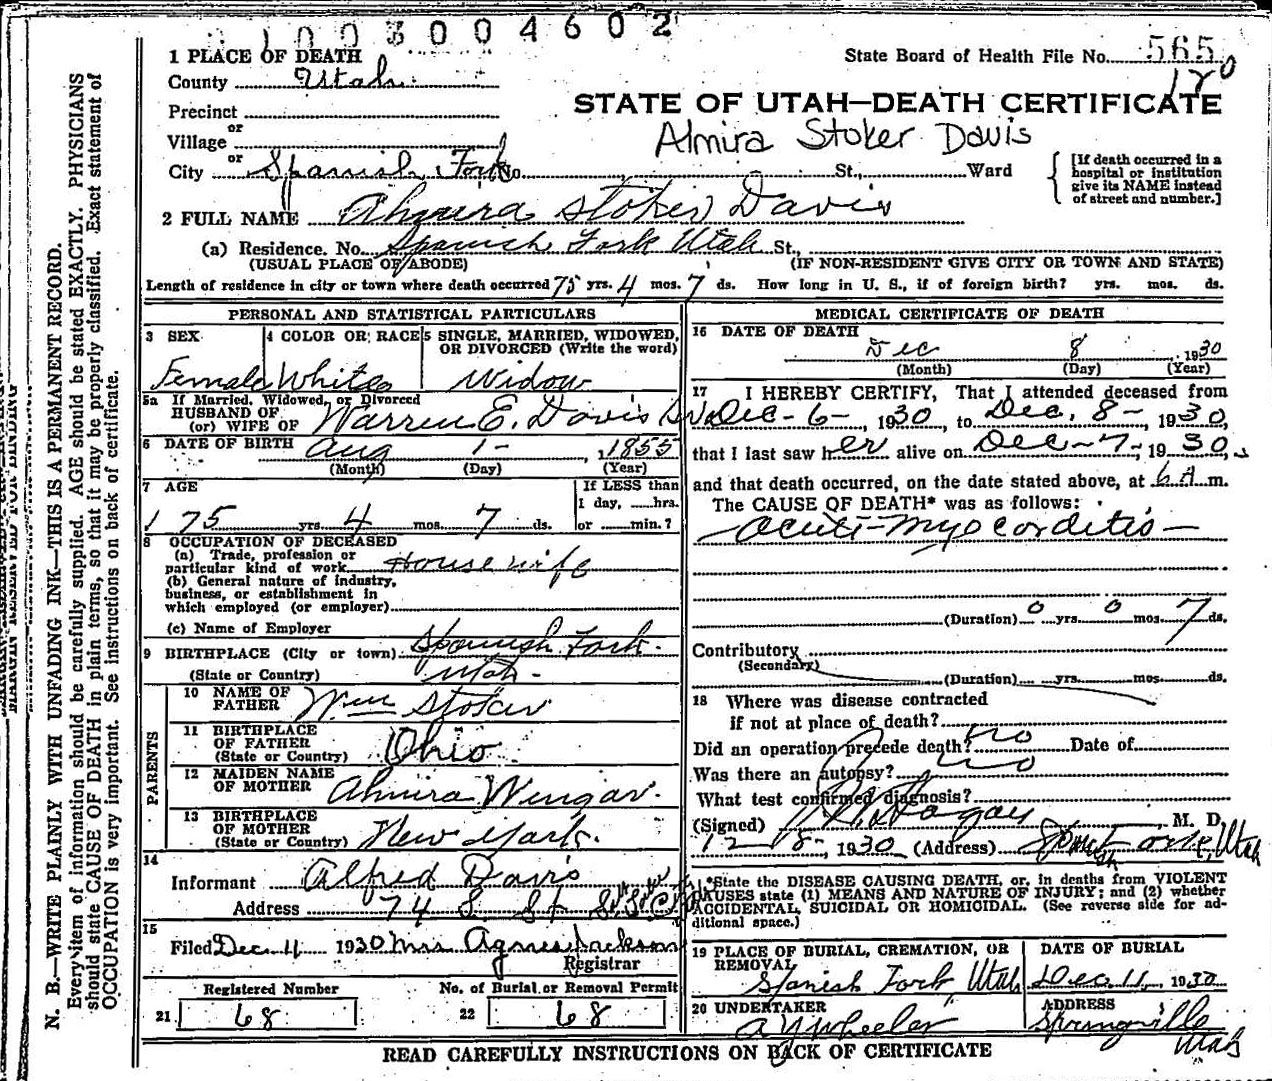 1003004602
1 PLACE OF DEATH
State Board of Health File No. 565
180
County Utah
STATE OF UTAH—DEATH CERTIFICATE
Precinct
or
Village
Almira Stoker Davis
or
City Spanish Fork No. St., Ward
[If death occurred in a
hospital or institution
give its NAME instead
of street and number.]
2 FULL NAME Almira Stoker Davis
(a) Residence. No. Spanish Fork Utah St.,
(USUAL PLACE OF ABODE) (IF NON-RESIDENT GIVE CITY OR TOWN AND STATE)
Length of residence in city or town where death occurred 75 yrs. 4 mos. 7 ds. How long in U. S., if of foreign birth? yrs. mos. ds.
PERSONAL AND STATISTICAL PARTICULARS
3 SEX
Female
4 COLOR OR RACE
White
5 SINGLE, MARRIED, WIDOWED,
OR DIVORCED (Write the word)
Widow
5a If Married, Widowed, or Divorced
HUSBAND OF
(or) WIFE OF Warren E. Davis Sr
6 DATE OF BIRTH Aug 1- , 1855
(Month) (Day) (Year)
7 AGE
75 yrs. 4 mos. 7 ds.
If LESS than
1 day, hrs.
or min.?
8 OCCUPATION OF DECEASED
(a) Trade, profession or
particular kind of work House wife
(b) General nature of industry,
business, or establishment in
which employed (or employer)
(c) Name of Employer
9 BIRTHPLACE (City or town) Spanish Fork.
(State or Country) Utah.
PARENTS
10 NAME OF
FATHER Wm Stoker
11 BIRTHPLACE
OF FATHER
(State or Country) Ohio
12 MAIDEN NAME
OF MOTHER Almira Wingar.
13 BIRTHPLACE
OF MOTHER
(State or Country) New York.
14
Informant Alfred Davis
Address 74 S. St
15
Filed Dec 11 1930 Mrs Agnes Jackson
Registrar
Registered Number
21 68
No. of Burial or Removal Permit
22 68
MEDICAL CERTIFICATE OF DEATH
16 DATE OF DEATH
Dec 8 , 1930
(Month) (Day) (Year)
17 I HEREBY CERTIFY, That I attended deceased from
Dec-6-, 1930, to Dec. 8-, 1930,
that I last saw her alive on Dec-7-, 1930,
and that death occurred, on the date stated above, at 6 A m.
The CAUSE OF DEATH* was as follows:
acute-myocorditis-
(Duration) 0 yrs. 0 mos. 7 ds.
Contributory
(Secondary)
(Duration) yrs. mos. ds.
18 Where was disease contracted
if not at place of death?
Did an operation precede death? no Date of
Was there an autopsy? no
What test confirmed diagnosis?
(Signed) Hagan, M. D.
12-8-, 1930 (Address) Spanish Fork, Utah
*State the DISEASE CAUSING DEATH, or, in deaths from VIOLENT
CAUSES state (1) MEANS AND NATURE OF INJURY; and (2) whether
ACCIDENTAL, SUICIDAL OR HOMICIDAL. (See reverse side for ad-
ditional space.)
19 PLACE OF BURIAL, CREMATION, OR
REMOVAL
Spanish Fork Utah
DATE OF BURIAL
Dec. 11, 1930
20 UNDERTAKER
A Y Wheeler
ADDRESS
Springville
Utah
READ CAREFULLY INSTRUCTIONS ON BACK OF CERTIFICATE
N. B.—WRITE PLAINLY WITH UNFADING INK—THIS IS A PERMANENT RECORD.
Every item of information should be carefully supplied. AGE should be stated EXACTLY. PHYSICIANS
should state CAUSE OF DEATH in plain terms, so that it may be properly classified. Exact statement of
OCCUPATION is very important. See instructions on back of certificate.